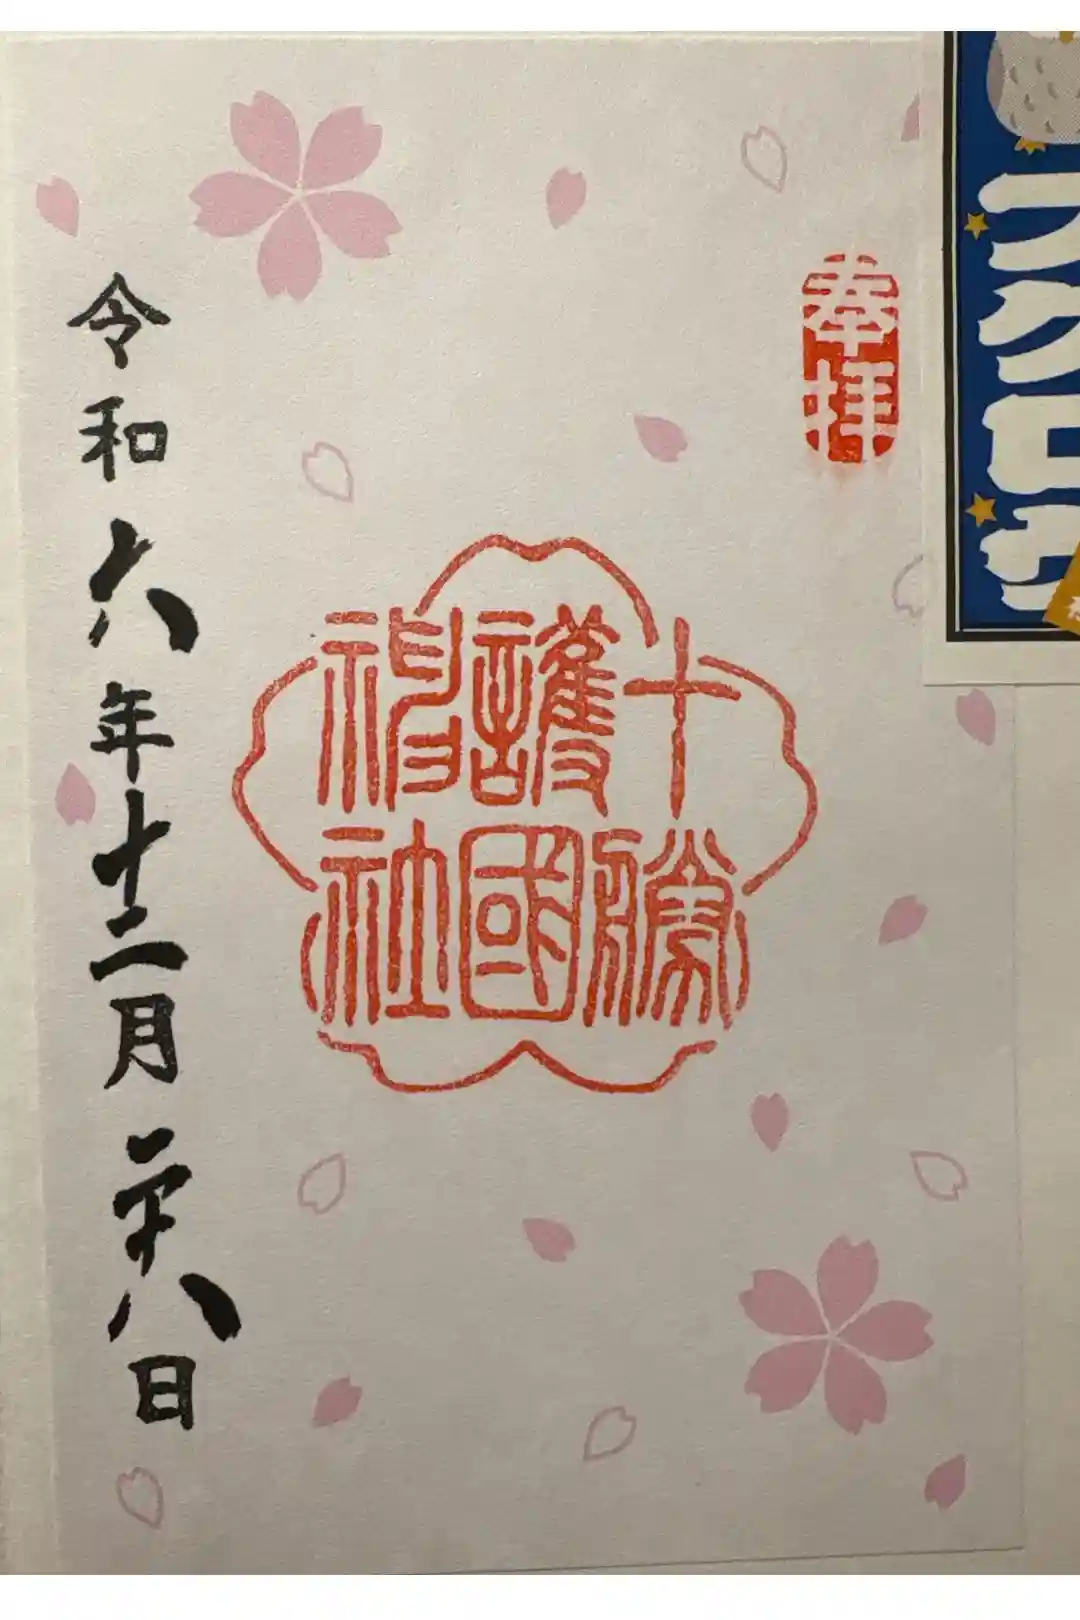 フクロウ
奉拝
十勝
護國
神社
令和六年十二月二十八日